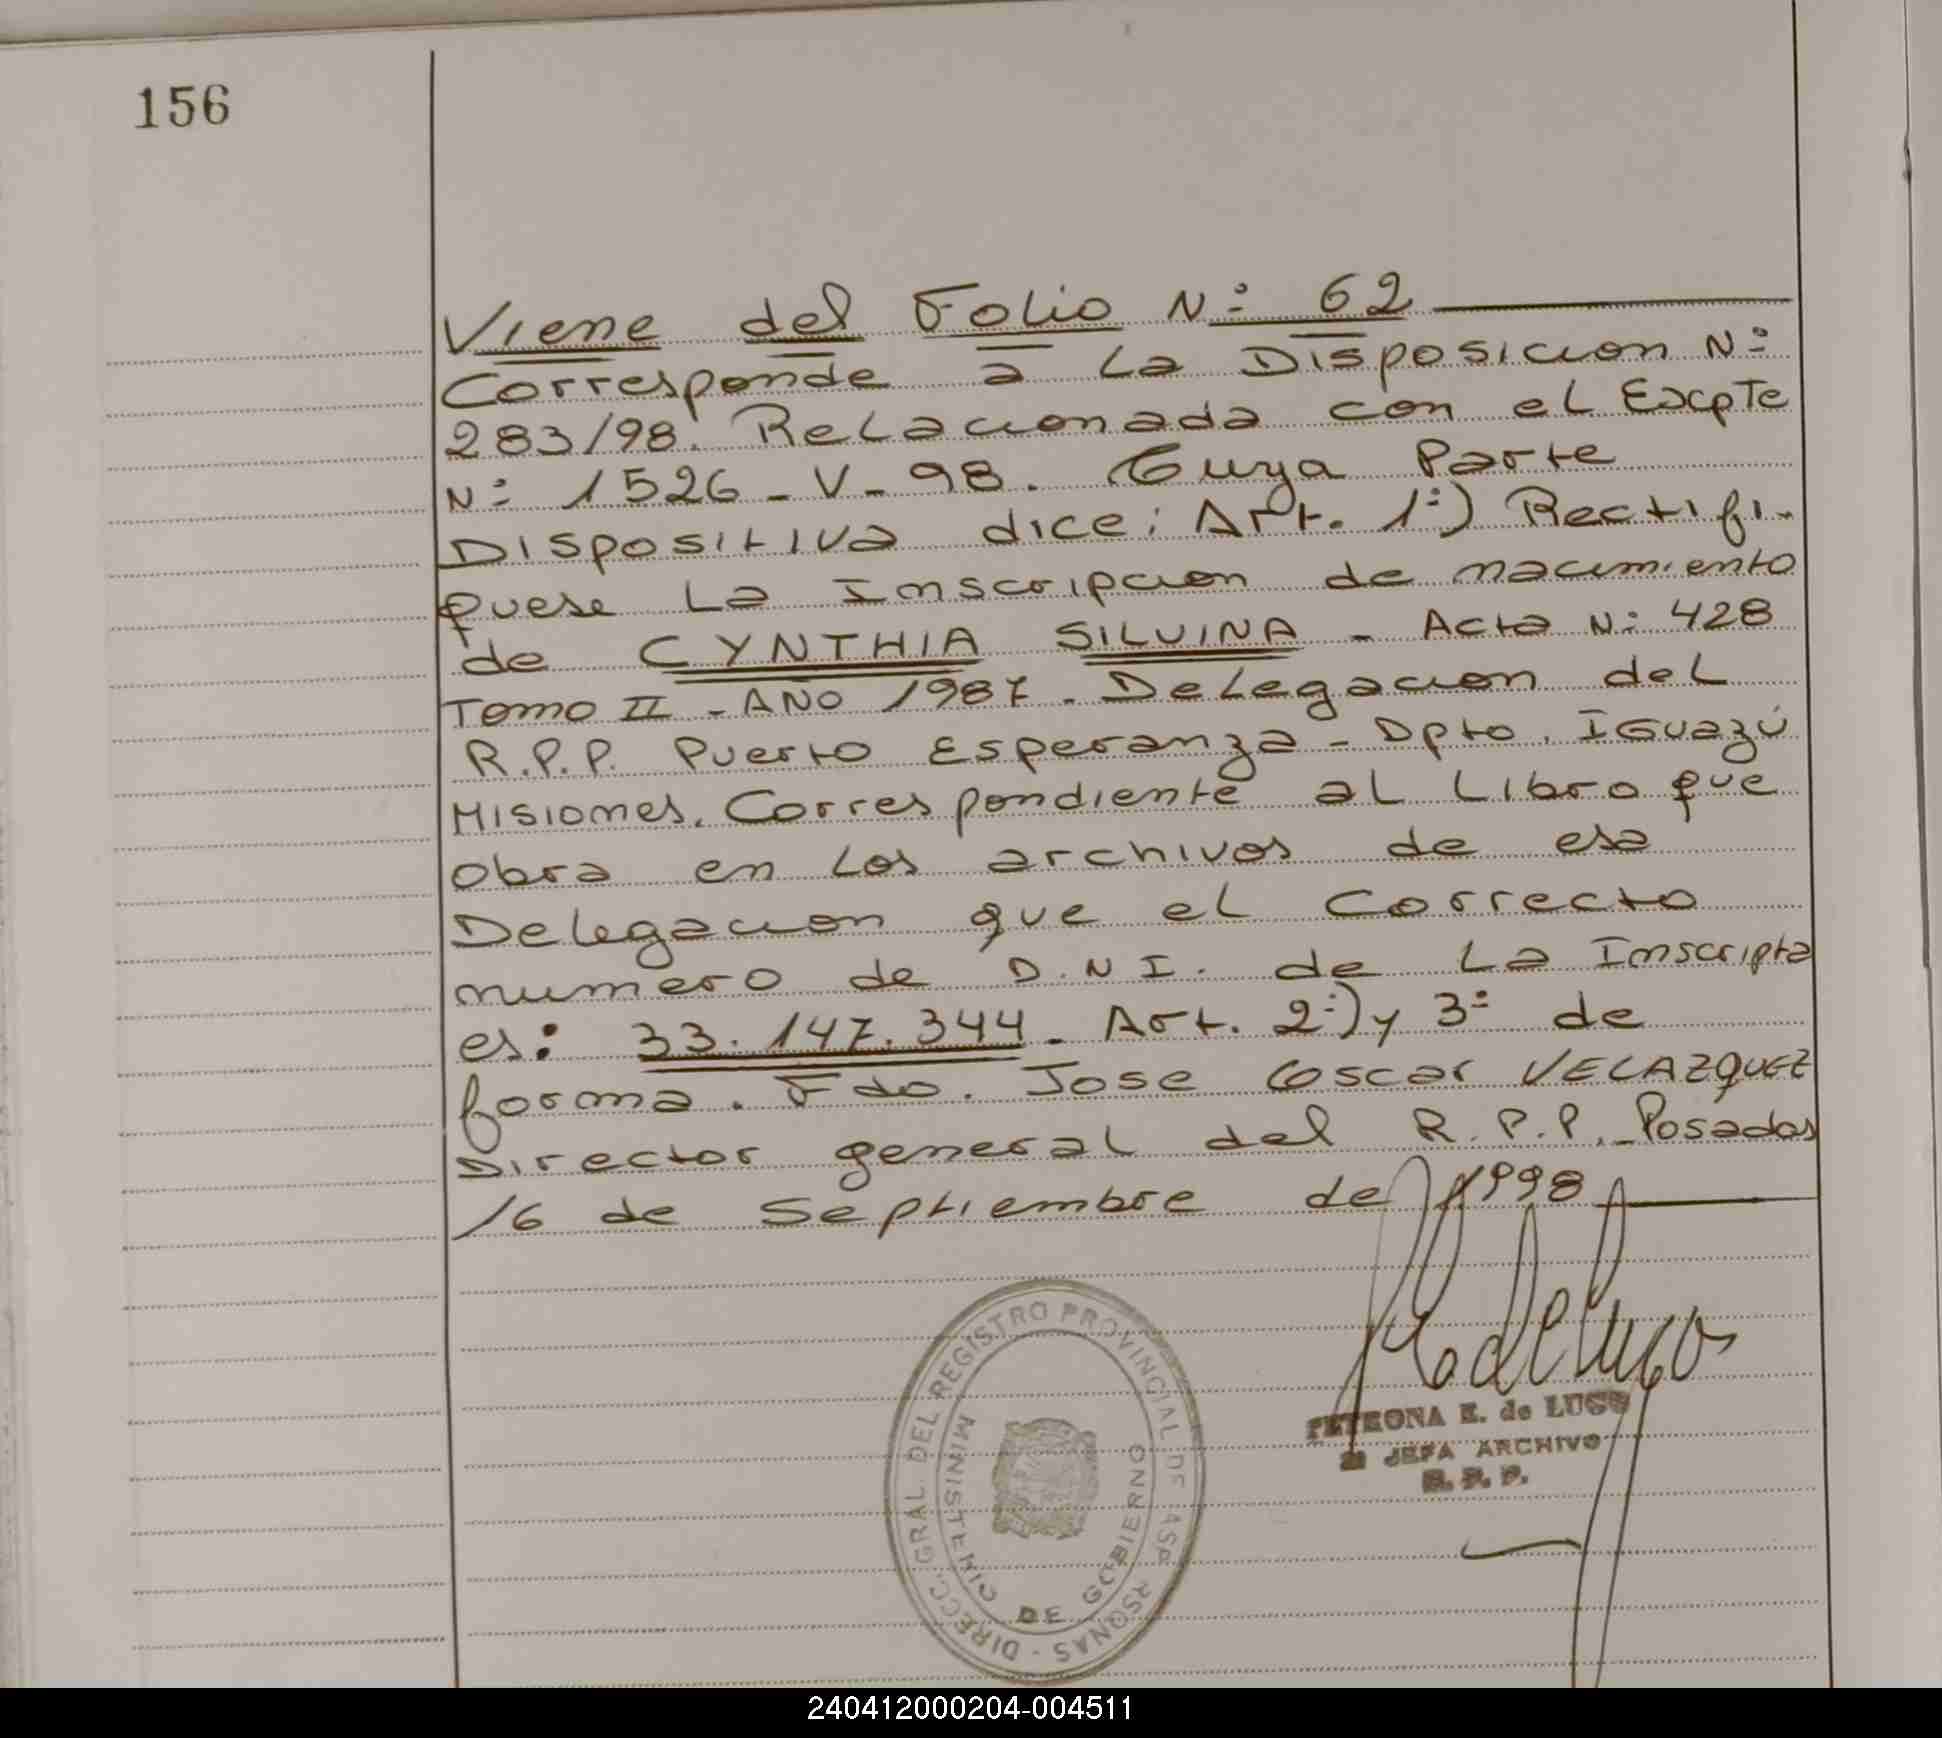 156
Viene del Folio N: 62
Corresponde a La Disposicion N:
283/98. Relacionada con el Excpte
N: 1526-V-98. Cuya Parte
Dispositiva dice: Art. 1:) Rectifi-
quese La Inscripcion de nacimiento
de CYNTHIA SILVINA - Acta N: 428
Tomo II - AÑO 1987. Delegacion del
R.P.P. Puerto Esperanza - Dpto. IGuazú
Misiones. Correspondiente al Libro que
obra en Los archivos de esa
Delegacion que el Correcto
numero de D.N.I. de La Inscripta
es: 33.147.344. Art. 2:) y 3: de
forma. Fdo. Jose Oscar VELAZQUEZ
Director general del R.P.P. Posadas
16 de Septiembre de 1998
PETRONA E. de LUGO
JEFA ARCHIVO
R. P. P.
DIRECC. GRAL. DEL REGISTRO PROVINCIAL DE LAS PERSONAS -
MINISTERIO DE GOBIERNO
240412000204-004511